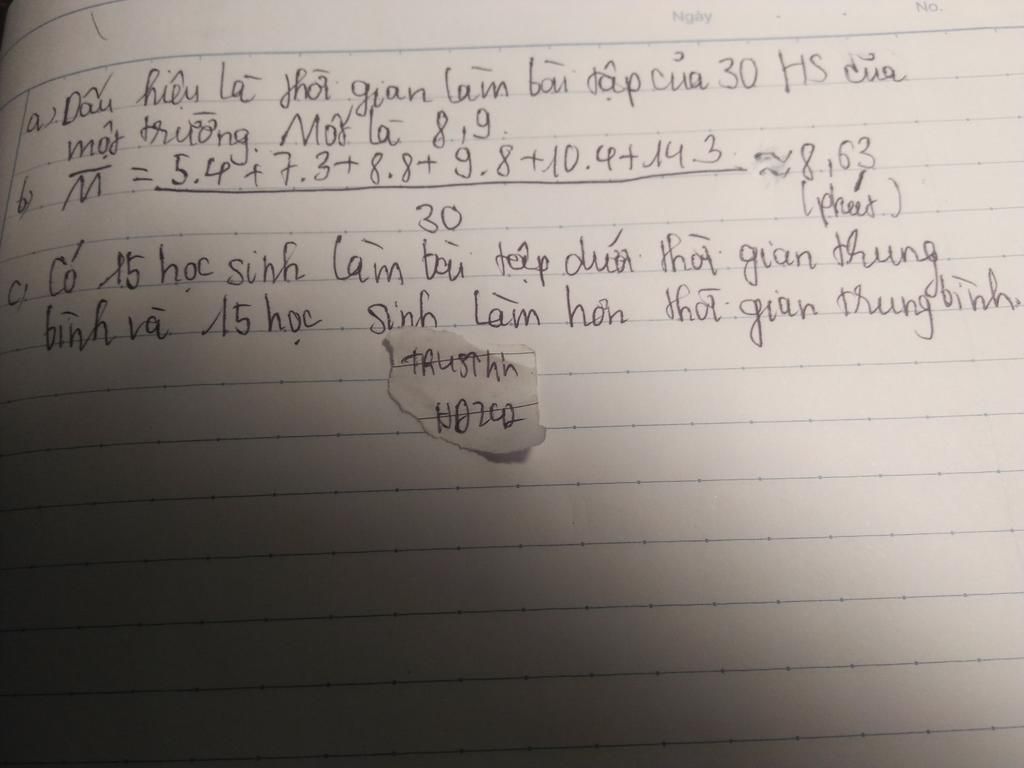 Ngày No.
a, Dấu hiệu là thời gian làm bài tập của 30 HS của
một trường. Mốt là 8,9.
b, M = 5.4 + 7.3 + 8.8 + 9.8 + 10.4 + 14.3 ≈ 8,63
30 (phút)
c, Có 15 học sinh làm bài tập dưới thời gian trung
bình và 15 học sinh làm hơn thời gian trung bình.